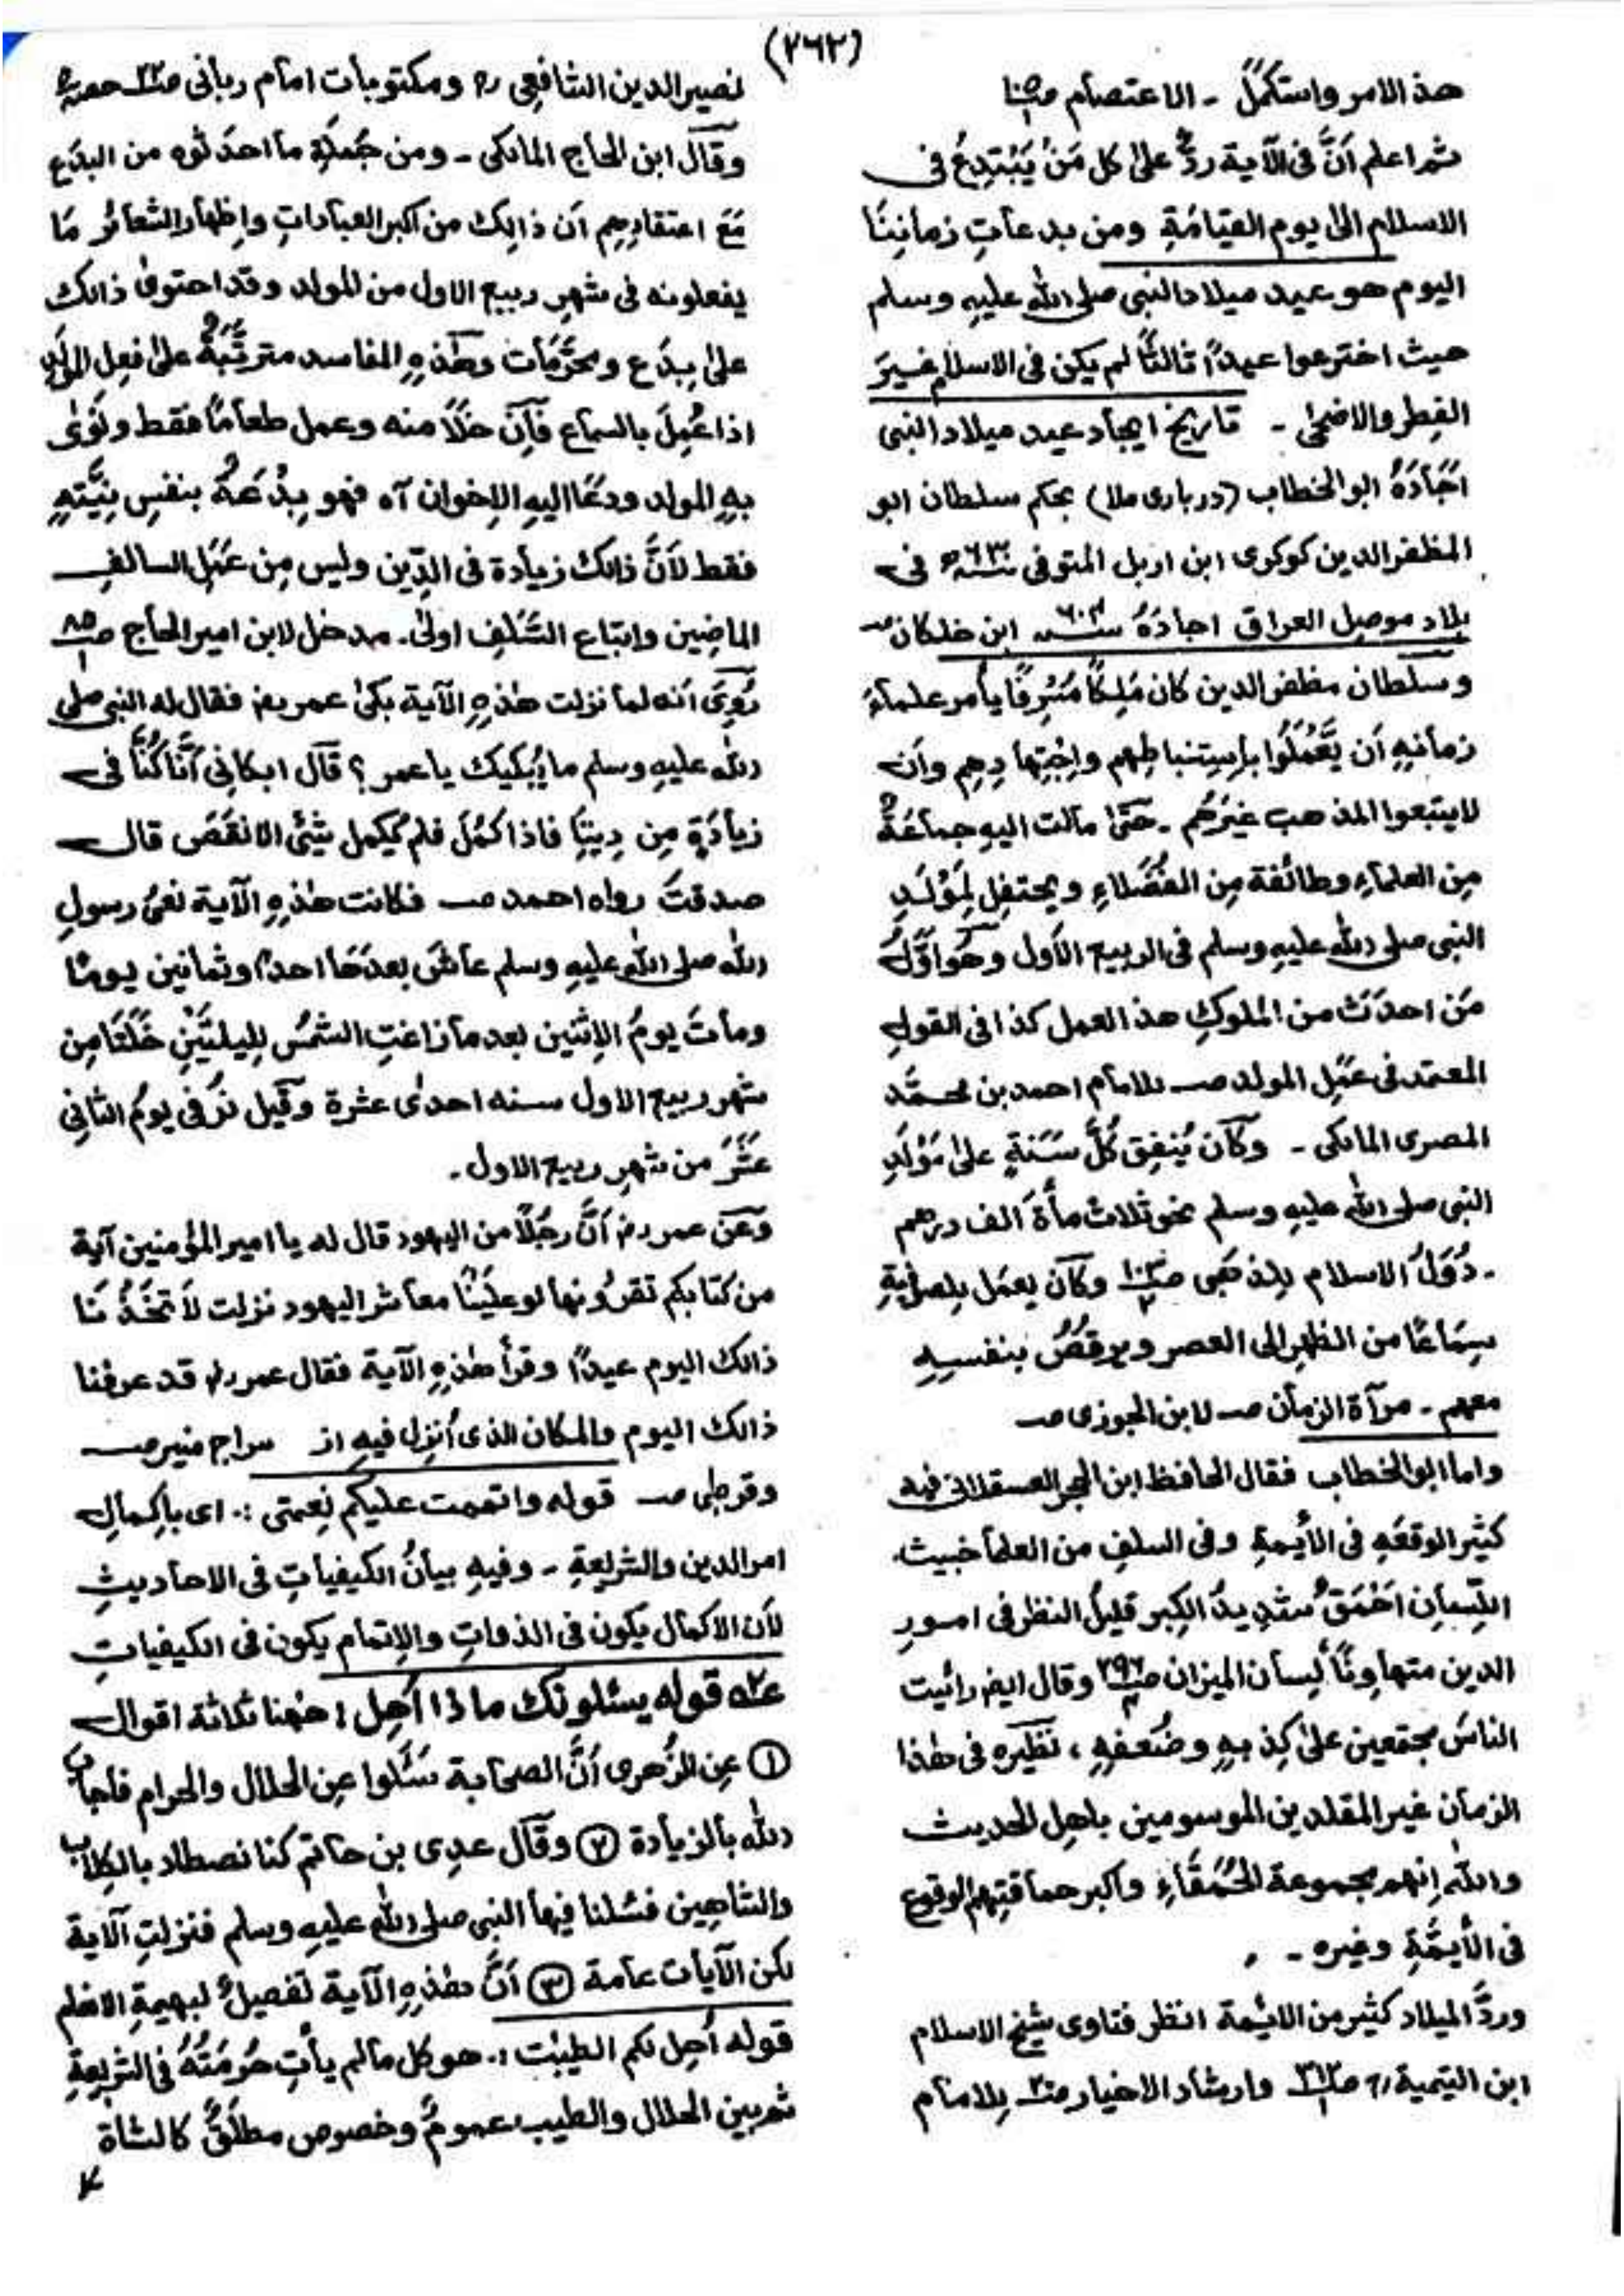 (٢٦٢)
هذ الامر واستكملَ - الاعتصام ص
ثم اعلم اَنَّ فى الآية ردٌّ علىٰ كل مَنْ يَبْتَدِعُ فى
الاسلام الىٰ يوم القيامَةِ ومن بدعاتِ زمانِنَا
اليوم هو عيد ميلاد النبى صلى الله عليهِ وسلم
حيث اخترعوا عيداً ثالثاً لم يكن فى الاسلام غيرَ
الفِطر والاضحىٰ - تاريخ ايجاد عيد ميلاد النبى
اَجَادَهُ ابو الخطاب (دربارى ملا) بحكم سلطان ابو
المظفر الدين كوكرى ابن اربل المتوفى سنه ٦٣٠ھ فى
بلاد موصِل العراق اجادَهُ سنه ٦٠٤ ابن خلكان صـ
وسلطان مظفر الدين كان مَلِكاً مُسْرِفًا يأمر علماءَ
زمانِهٖ اَن يَّعْمَلُوا بِاسِتنباطِهم واِجْتِهادِهِم وان
لايتبعوا المذهب غيرَهُم - حَتىٰ مآلت اليهِ جماعَةٌ
مِن العلماءِ وطائفة مِن الفُضَلاءِ ويحتفِل لِمَوْلَدِ
النبى صلى الله عليهِ وسلم فى الربيع الاَول وهُو اوّلُ
مَن احدَثَ من المُلوكِ هذ العمل كذا فى القولِ
المعتمد فى عَمَلِ المولد صـ للامام احمد بن محمَّد
المصرى المالكى - وكآن يُنفِق كُلَّ سَنَةٍ علىٰ مَوْلَدِ
النبى صلى الله عليهِ وسلم نحو ثلاث مأة الف درهم
- دُوَلُ الاسلام للذهَبى صـ وكآن يعمَل للصوفيةِ
سِمَاعًا من الظهرِ الى العصر ويرقُصُ بنفسِهٖ
معهم - مرآة الزمان صـ لابن الجوزى صـ
واما ابو الخطاب فقال الحافظ ابن الحجر العسقلانى فيه
كثير الوقعَهِ فى الاَئِمةِ وفى السلفِ من العلمآ خبيث
اللِّسانِ اَحْمَقُ شدِيدُ الكِبر قليلُ النظر فى امورِ
الدين متهاوِنًا لِسان الميزان صـ وقال ايضا رائيت
الناسَ مجتمعين علىٰ كِذبهٖ وضُعفِهٖ ، نَظِيره فى هٰذا
الزمان غير المقلدين الموسومين باهلِ الحديث
والله اِنهم مجموعة الحُمَقَاءِ واكبر حماقتِهِم الوقوع
فى الاَئِمَّةِ وغيره -
وردَّ الميلاد كثير من الائِمة انظر فتاوى شيخ الاسلام
ابن التيمية صـ وارشاد الاخيار صـ للامام
نصير الدين الشافعى ومكتوبات امام ربانى صـ حصه
وقآل ابن الحاج المالكى - ومن جُملَةِ ما احدثوه من البِدَع
مَعَ اعتقادِهِم اَن ذالِك من اكبر العبادات واِظهار الشعائر مَا
يفعلونه فى شهرِ ربيع الاول من المولد وقد احتوىٰ ذالك
علىٰ بِدَع ومحرَّمات وهٰذهِ المفاسد مترتِّبَةٌ علىٰ فعلِ المولَدِ
اذا عُمِلَ بالسماع فاِن خَلَا منه وعمل طعاماً فقط ونَوىٰ
بهٖ المولد ودعَا اليهِ الاِخوان آه فهو بِدْعَةٌ بنفسِ نِيَّتِهٖ
فقط لاَنَّ ذالك زيادة فى الدِّين وليس مِن عَمَلِ السالفِ
الماضِين واتباع السَّلفِ اولىٰ. مدخل لابن امير الحاج صـ
رُوِىَ اَنه لما نزلت هٰذهِ الآية بكىٰ عمر رض فقال له النبى صلى
الله عليهِ وسلم ما يُبكيك يا عمر ؟ قآل ابكانى اَنَّا كُنَّا فى
زيادَةٍ مِن دِينِنَا فاذا كَمُلَ فلم يُكمل شئىٌ الا نقَصَ قال
صدقتَ رواه احمد صـ فكانت هٰذهِ الآية نعىُ رسولِ
الله صلى الله عليهِ وسلم عاشَ بعدَهَا احداً وثمانين يومًا
وماتَ يومُ الاِثنين بعد ما زاغتِ الشمسُ لِليلتَيْنِ خَلَتَا مِن
شهر ربيع الاول سنه احدىٰ عشرة وقيل توُفى يومُ الثانِى
عَشَرَ من شهرِ ربيع الاول.
وعَن عمر رض اَنَّ رجُلاً من اليهود قال له يا امير المؤمنين آية
من كتابكم تقرؤنها لو علَيْنَا معاشر اليهود نزلت لاَتَّخَذْنَا
ذالك اليوم عيداً وقرأ هٰذهِ الآية فقال عمر رض قد عرفنا
ذالك اليوم والمكان الذى اُنزِل فيهِ از سراج منير صـ
وقرطبى صـ قوله واتممت عليكم نِعمتى :. اى بِاِكمالِ
امر الدين والشريعةِ - وفيهِ بيانُ الكيفياتِ فى الاحاديثِ
لاَن الاكمال يكون فى الذواتِ والاِتمام يكون فى الكيفياتِ
عـ٢ قوله يسئلونك ماذا اُحِل : ههُنا ثلاثة اقوال
① عنِ الزُهرى اَنَّ الصحابة سَئَلوا عنِ الحلال والحرام فاجاب
الله بالزيادة ② وقآل عدِى بن حاتم كنا نصطاد بالكِلاب
والشاهِين فسُئلنا فيها النبى صلى الله عليهِ وسلم فنزلتِ الآية
لكن الآيات عآمة ③ اَنَّ هٰذهِ الآية تفصيلٌ لبهيمةِ الانعام
قوله اُحِل لكم الطيبٰت :. هو كل مالم يأتِ حُرمَتُهُ فى الشريعةِ
ثم بين الحلال والطيب عمومٌ وخصوص مطلَقٌ كالشاة